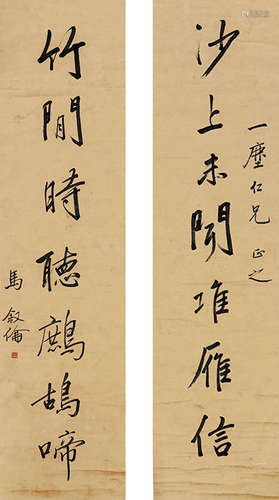 沙上未聞堆雁信
一塵仁兄正之
竹間時聽鷓鴣啼
馬敘倫